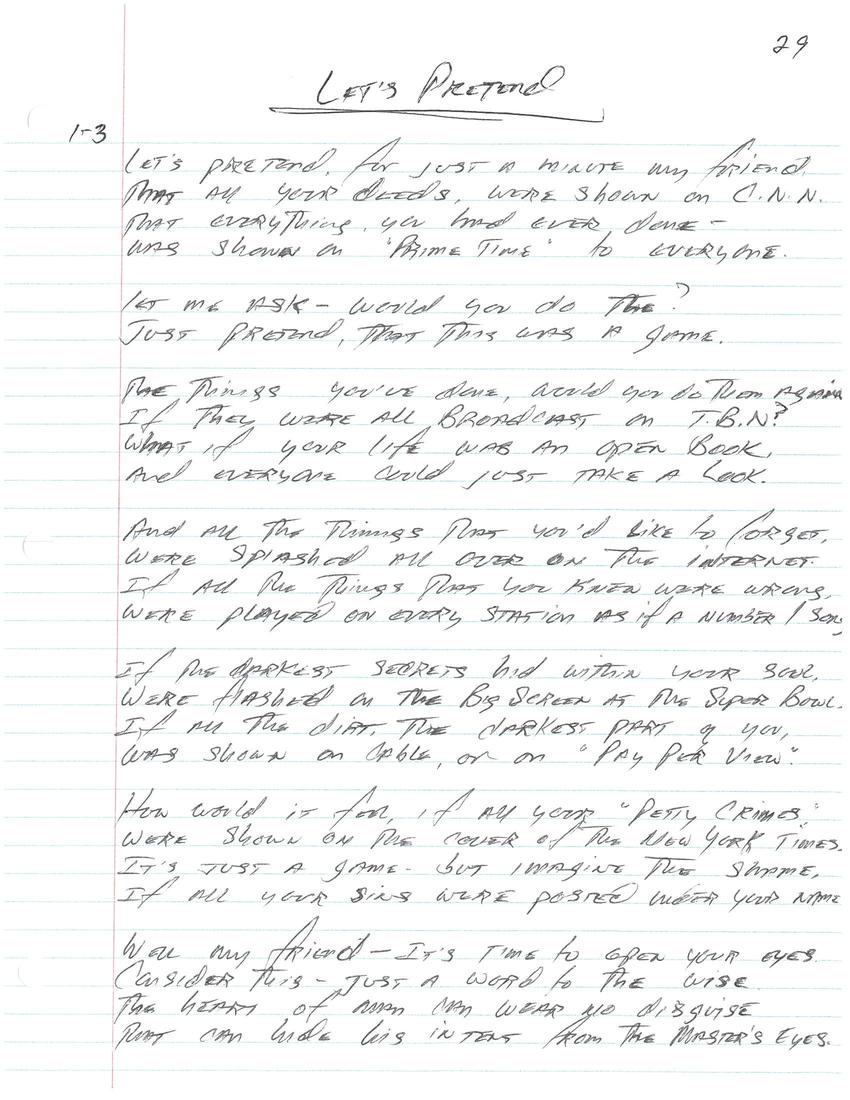 29
LET'S PRETEND
1-3
LET'S PRETEND, for JUST A MINUTE my friend,
THAT ALL YOUR DEEDS, WERE SHOWN on C.N.N.
THAT EVERYTHING, you had EVER done -
WAS SHOWN on "PRIME TIME" to EVERYONE.
LET ME ASK - WOULD you do THE ?
JUST PRETEND, THAT THIS WAS A GAME.
THE THINGS YOU'VE done, WOULD you do THEM AGAIN
If THEY WERE ALL BROADCAST on T.B.N?
WHAT if YOUR LIFE WAS AN OPEN BOOK,
And EVERYONE COULD JUST TAKE A LOOK.
And ALL THE THINGS THAT YOU'd LIKE to FORGET,
WERE SPLASHED ALL OVER ON THE INTERNET.
If ALL THE THINGS THAT YOU KNEW WERE WRONG,
WERE PLAYED ON EVERY STATION AS if A NUMBER 1 SONG
If THE DARKEST SECRETS hid within YOUR SOUL,
WERE flASHED on THE BIG SCREEN AT THE SUPER BOWL.
If ALL THE DIRT, THE DARKEST PART of YOU,
WAS SHOWN on CABLE, or on "PAY PER VIEW".
HOW WOULD it feel, if ALL YOUR "PETTY CRIMES,"
WERE SHOWN ON THE COVER of THE NEW YORK TIMES.
IT'S JUST A GAME - but IMAGINE THE SHAME,
If ALL YOUR SINS WERE POSTED UNDER YOUR NAME
WELL my friend - IT'S TIME to OPEN YOUR EYES.
CONSIDER THIS - JUST A WORD to THE WISE
THE HEART of MAN CAN WEAR NO DISGUISE
THAT CAN hide his INTENT from THE MASTER'S EYES.